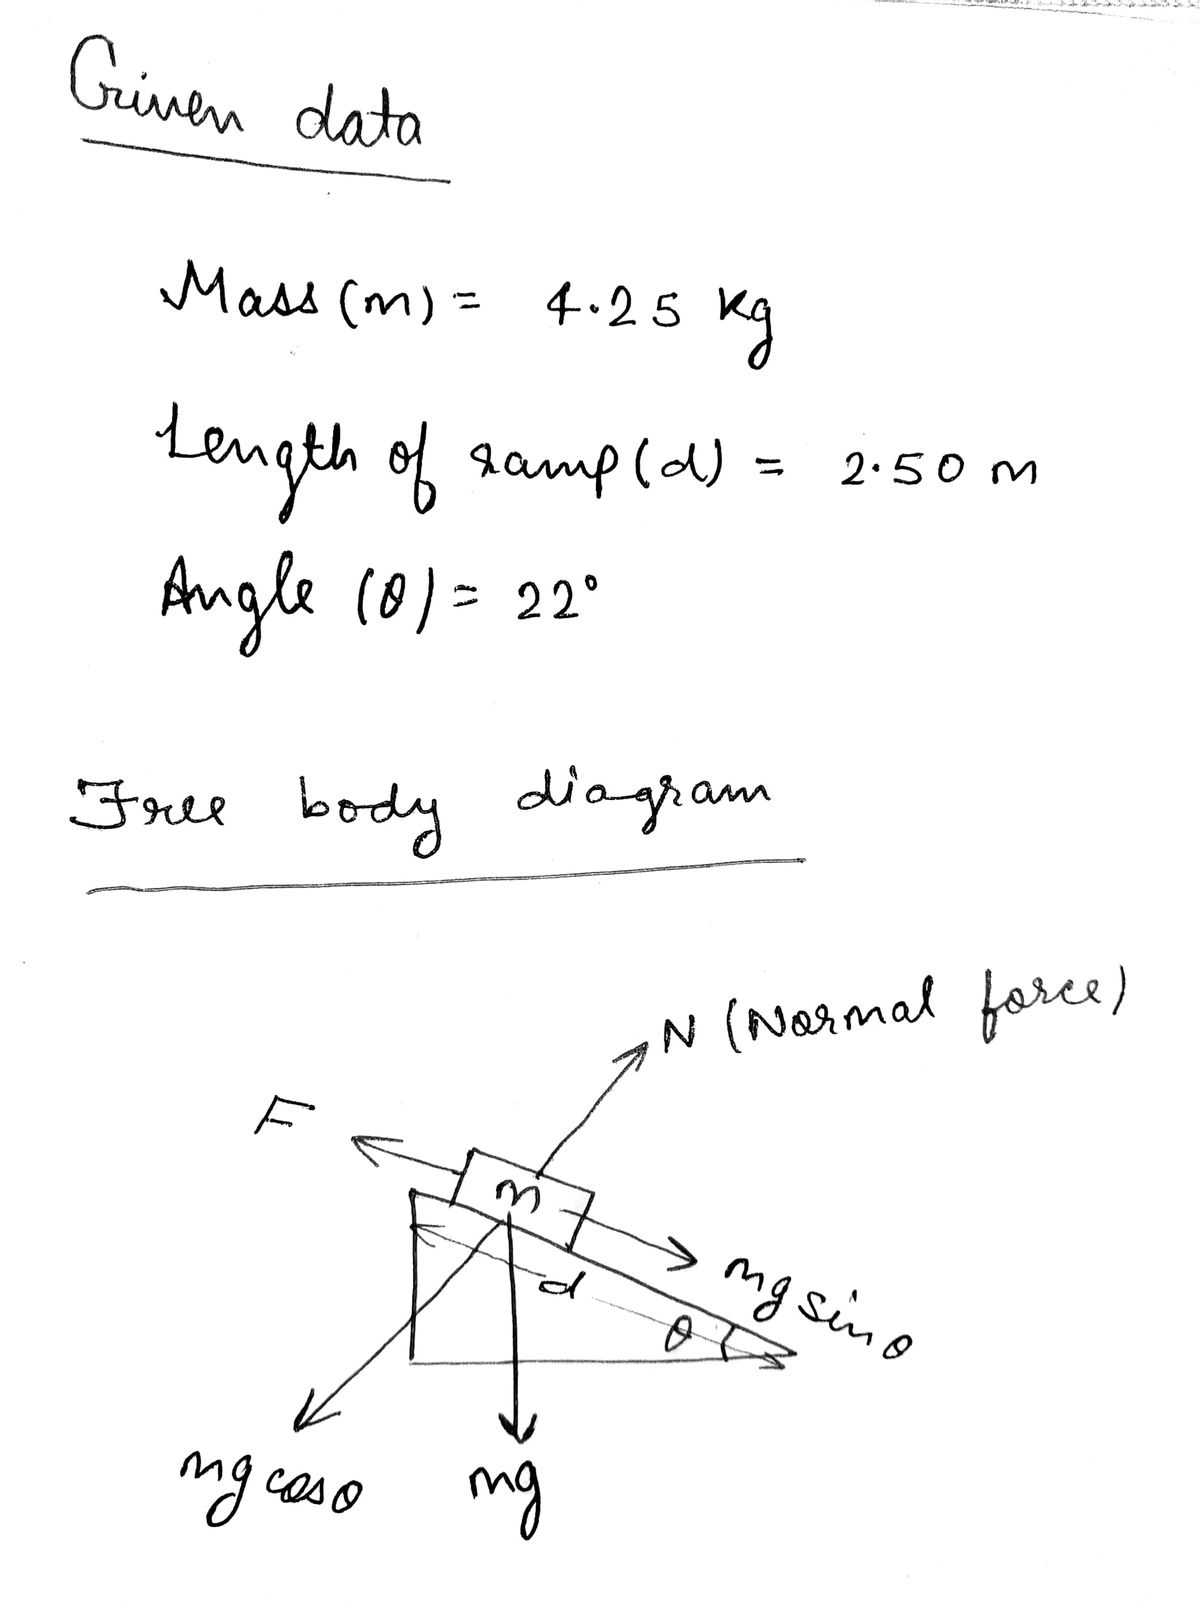 Given data
Mass (m) = 4.25 kg
Length of ramp (d) = 2.50 m
Angle (θ) = 22°
Free body diagram
N (Normal force)
F
m
d
θ
mg sin θ
mg cos θ
mg